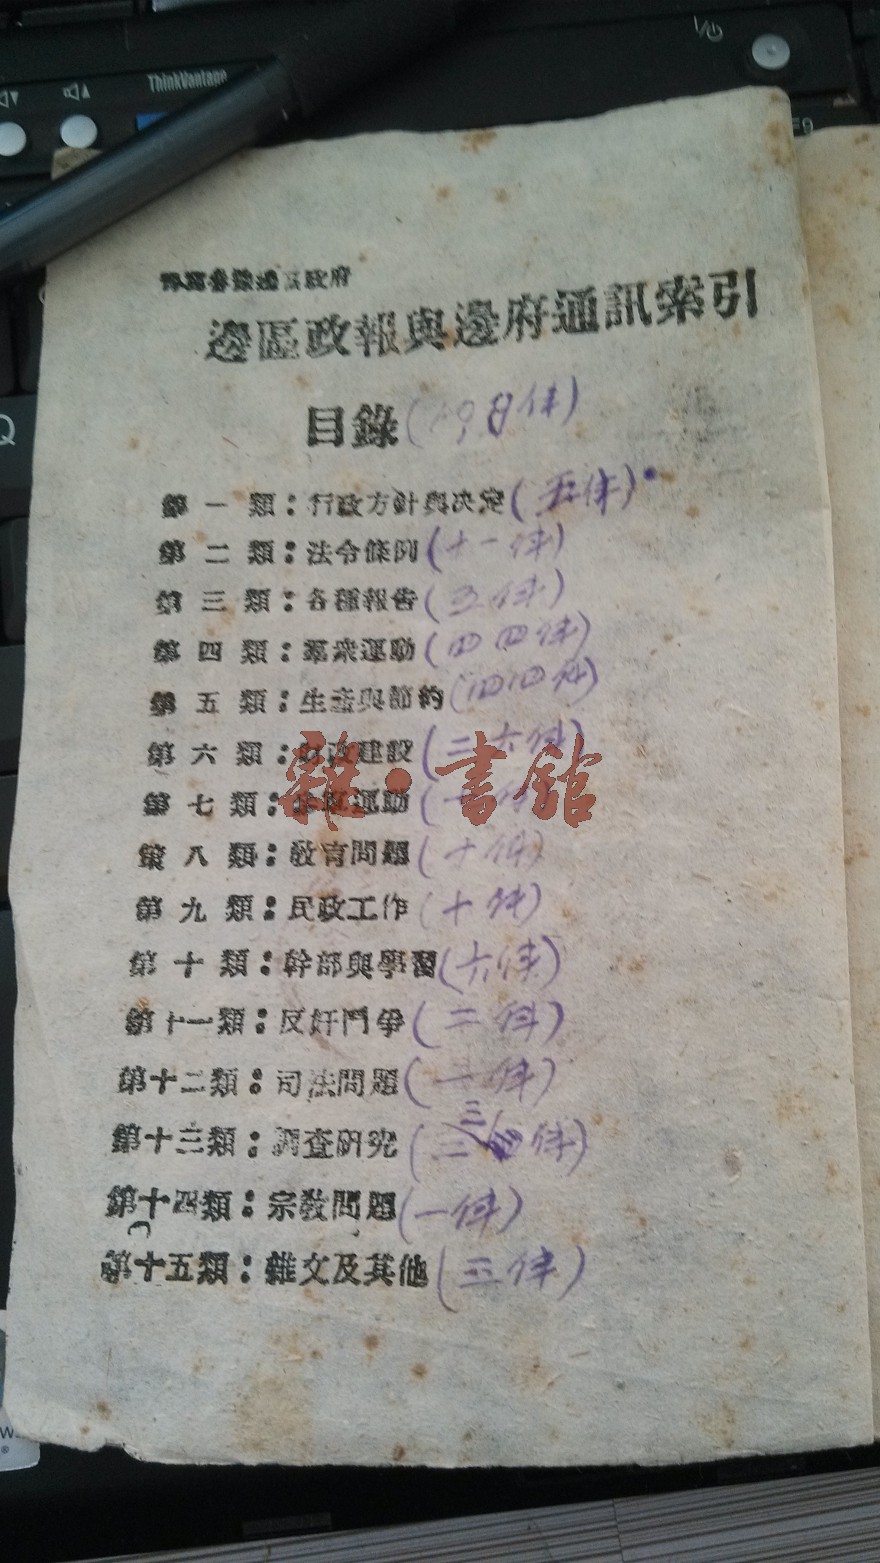 ThinkVantage
F9
Q
豫鄂邊區政府
邊區政報與邊府通訊索引
目錄(198件)
第一類：行政方針與决定(五件)
第二類：法令條例(十一件)
第三類：各種報告(五件)
第四類：羣衆運動(四四件)
第五類：生產與節約(四四件)
第六類：財政建設(二六件)
第七類：運動
第八類：敎育問題(十件)
第九類：民政工作(十件)
第十類：幹部與學習(六件)
第十一類：反奸鬥爭(二件)
第十二類：司法問題(一件)
第十三類：調查研究(二件)
三
第十四類：宗敎問題(一件)
第十五類：雜文及其他(三件)
雜·書館